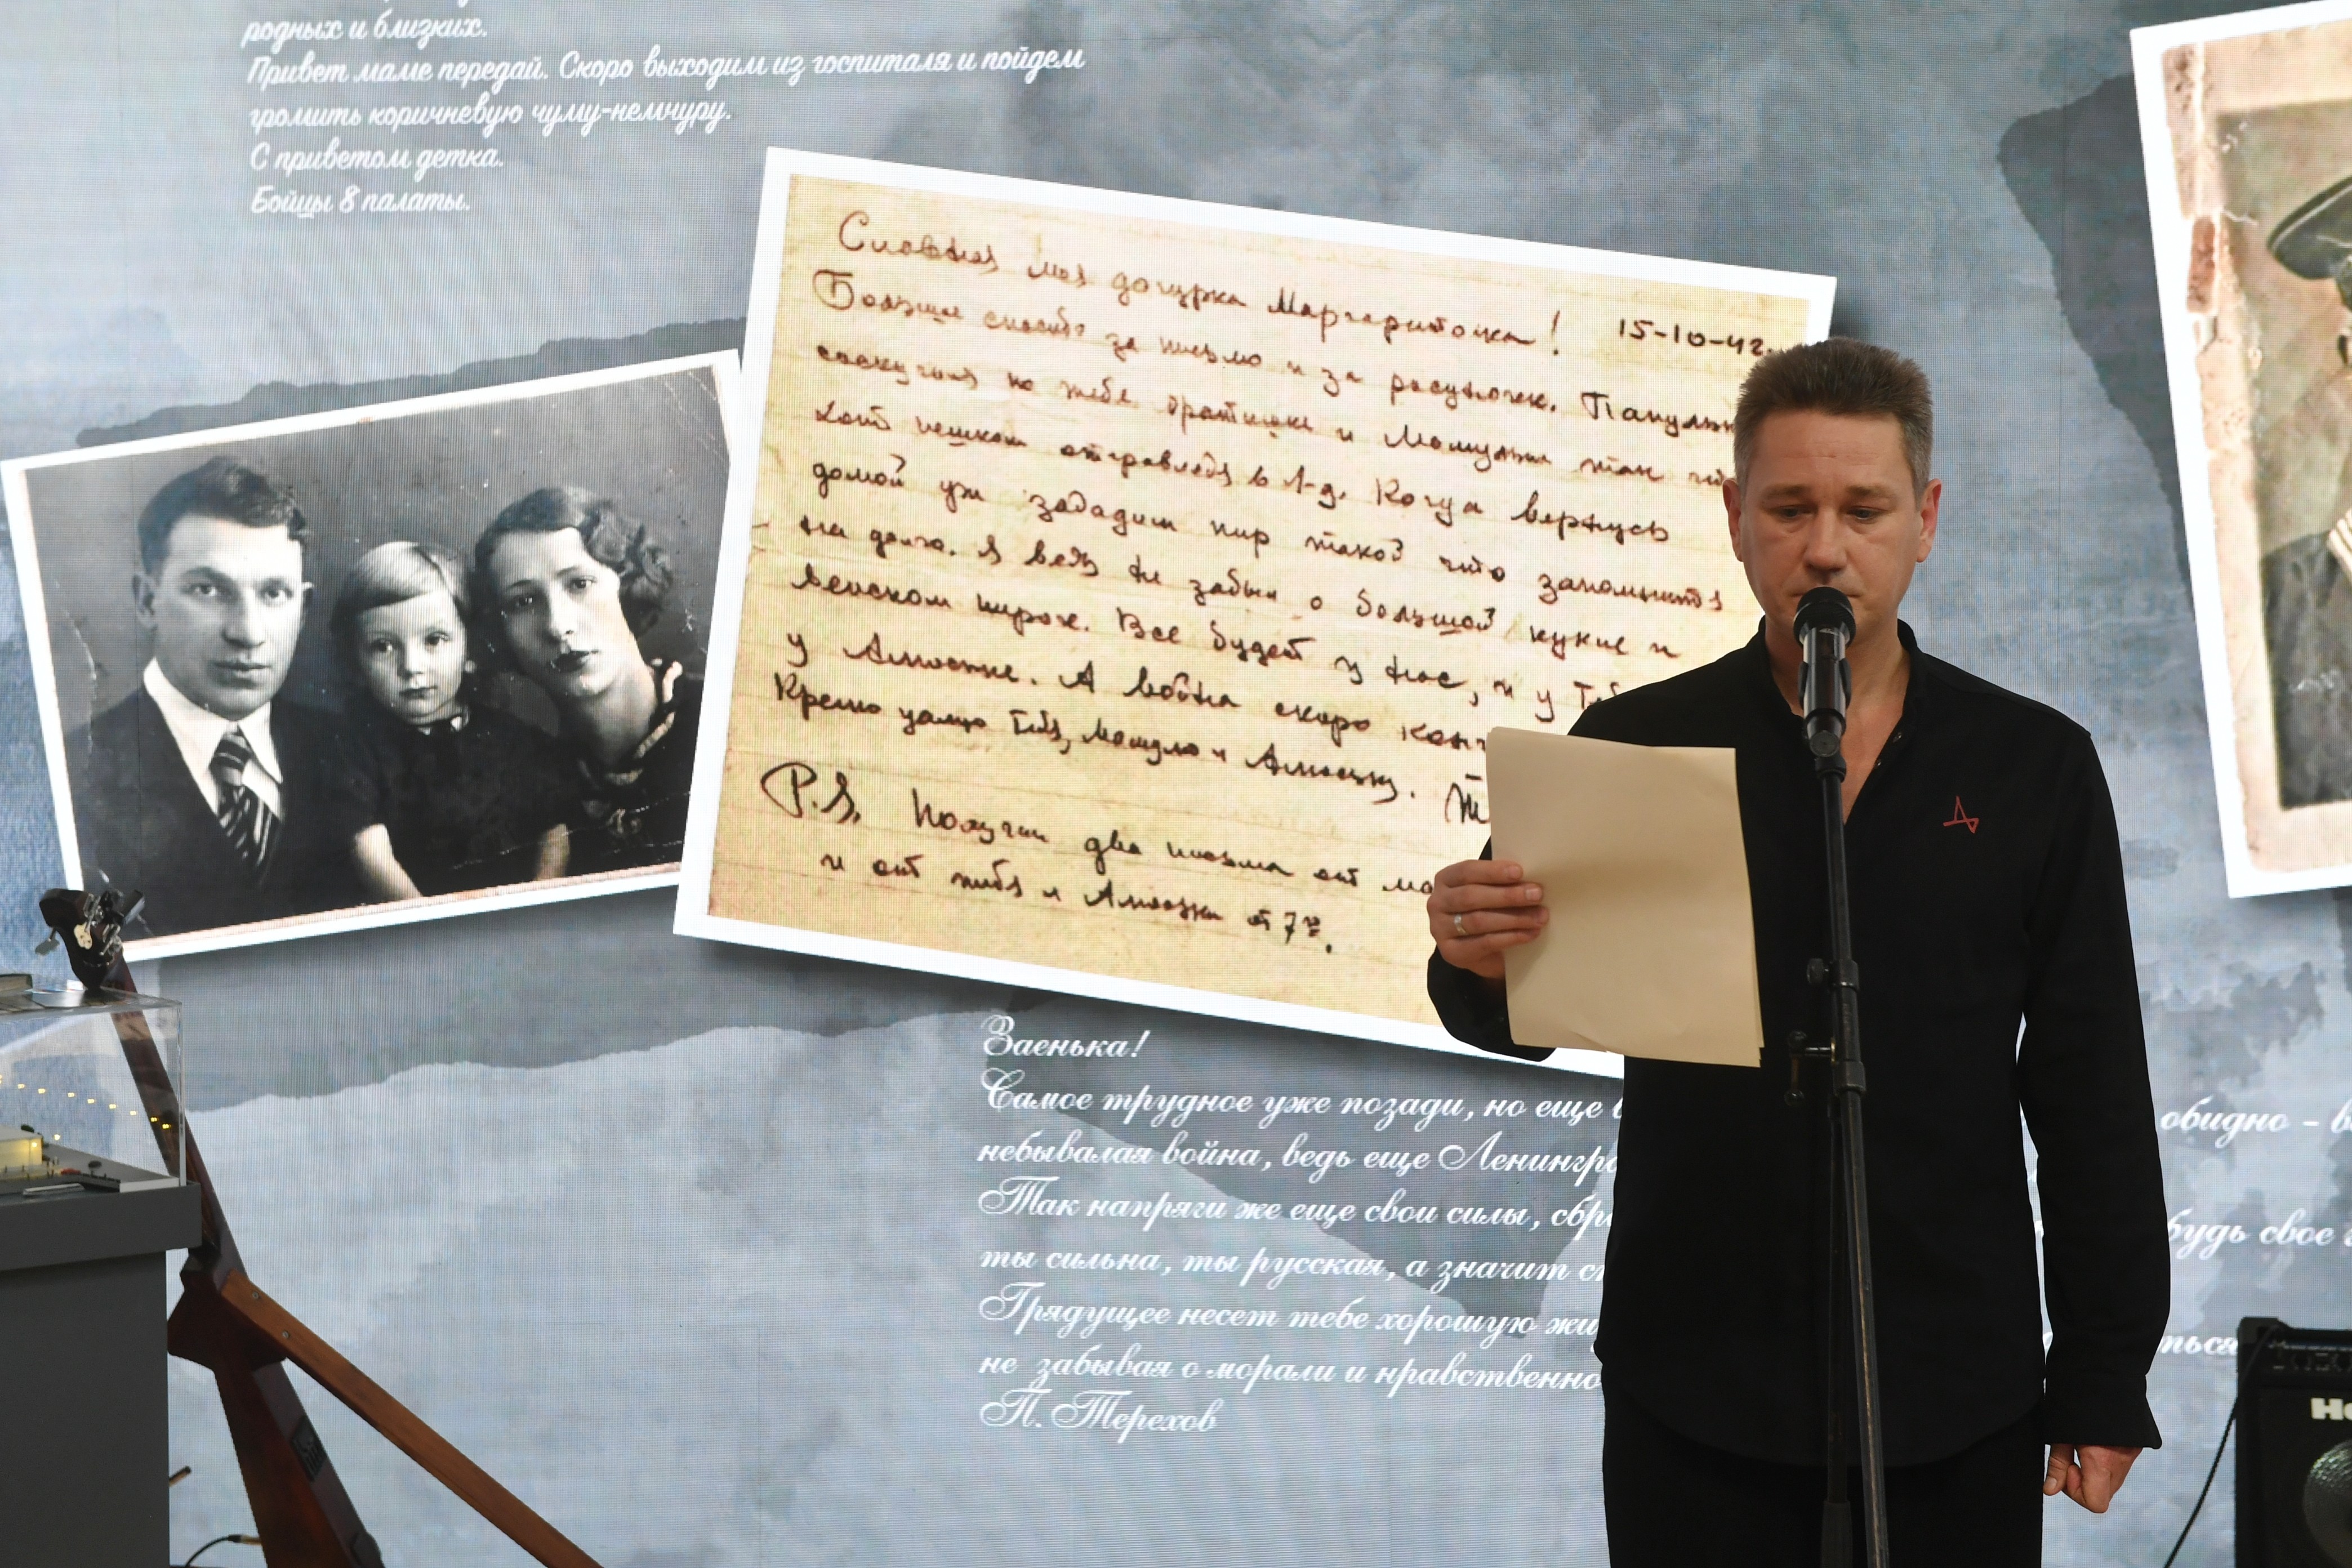 родных и близких.
Привет маме передай. Скоро выходим из госпиталя и пойдем
громить коричневую чуму-немчуру.
С приветом детка.
Бойцы 8 палаты.
Славная моя дочурка Маргариточка! 15-10-42.
Большое спасибо за письмо и за рисуночек. Папулька
соскучился по тебе братишке и Мамульке так что
хоть пешком отправляйся в Л-д. Когда вернусь
домой уж зададим пир такой что запомнится
на долго. Я ведь не забыл о большой кукле и
велском пироге. Все будет у нас, и у Теб
у Алюськи. А война скоро конч
Крепко целую Тебя, Мамулю и Алюську.
P.S. Получил два письма от ма
и от тебя и Алюськи от 7го.
Заенька!
Самое трудное уже позади, но еще
небывалая война, ведь еще Ленингра
Так напряги же еще свои силы, сбро
ты сильна, ты русская, а значит с
Грядущее несет тебе хорошую жи
не забывая о морали и нравственно
П. Терехов
обидно - в
будь свое
ться